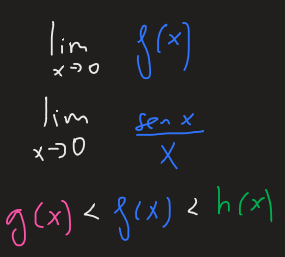 lim x→0 f(x)
lim x→0 sen x / x
g(x) < f(x) < h(x)